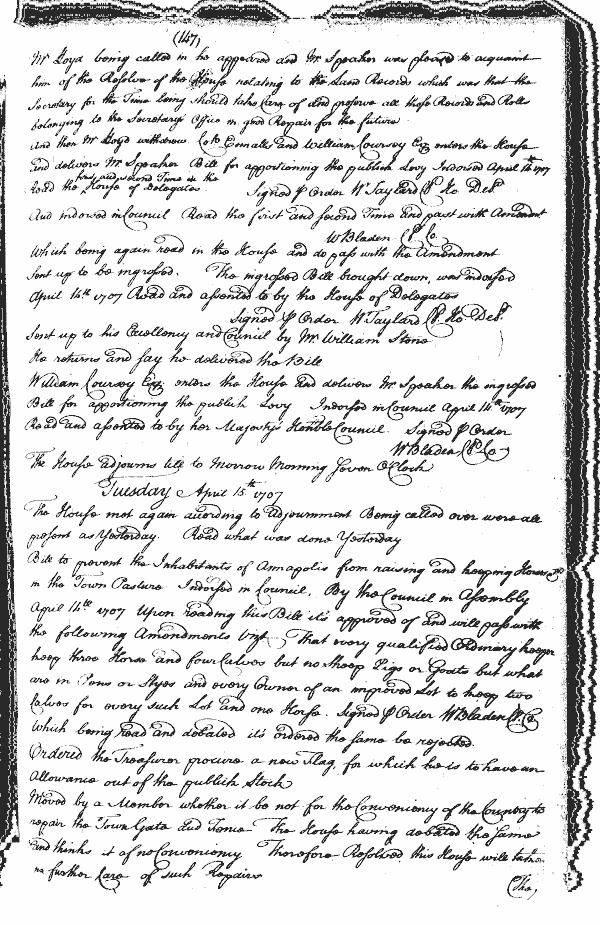 (147)
Mr Loyd being called in he appeared and Mr Speaker was pleased to acquaint
him of the Resolve of the House relating to the Land Records which was that the
Secretary for the Time being should take Care of and preserve all those Records and Rolls
belonging to the Secretarys Office in good Repair for the future
And then Mr Loyd withdrew Collo Ennalls and William Coursey Esq enters the House
and delivers Mr Speaker Bill for apportioning the publick Levy Indorsed April 14th 1707
first and second Time in the
Read the House of Delegates Signed p Order W Taylard Cl Ho Delts
And indorsed in Council Read the first and second Time and past with Amendmt
W Bladen Cl Co
Which being again read in the House and do pass with the Amendment
sent up to be ingrossed. The ingrossed Bill brought down, was indorsed
April 14th 1707 Read and assented to by the House of Delegates
Signed p Order W Taylard Cl. Ho Delts
Sent up to his Excellency and Council by Mr William Stone
He returns and say he delivered the Bill
William Coursey Esq enters the House and delivers Mr Speaker the ingrossed
Bill for apportioning the publick Levy Indorsed in Council April 14th 1707
Read and assented to by her Majestys Honble Council Signed p Order
W Bladen Cl Co
The House adjourns till to Morrow Morning Seven O'Clock
Tuesday April 15th 1707
The House met again according to Adjournment Being called over were all
present as Yesterday. Read what was done Yesterday
Bill to prevent the Inhabitants of Annapolis from raising and keeping Horses
in the Town Pasture Indorsed in Council, By the Council in Assembly
April 14th 1707 Upon reading this Bill it's approved of and will pass with
the following Amendments Vizt That every qualified Ordinary keeper
keep three Horse and four Calves but no Sheep Pigs or Goats but what
are in Pens or Styes and every Owner of an improved Lot to keep two
Calves for every such Lot and one Horse. Signed p Order W Bladen Cl. Co
Which being Read and debated it's ordered the same be rejected.
Ordered the Treasurer procure a new Flag, for which he is to have an
Allowance out of the publick Stock
Moved by a Member whether it be not for the Conveniency of the Country to
repair the Town Gate and Fence The House having debated the same
and thinks it of no Conveniency Therefore Resolved this House will take
no further Care of such Repairs
The